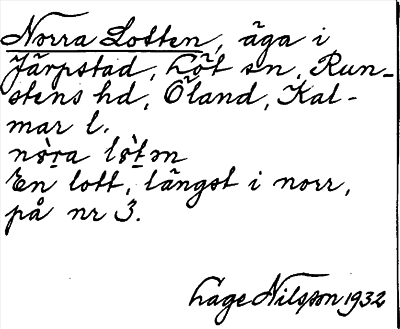 Norra Lotten, äga i
Järpstad, Löt sn, Run-
stens hd, Öland, Kal-
mar l.
nòra lòtən
En lott, längst i norr,
på nr 3.
Låge Nilsson 1932